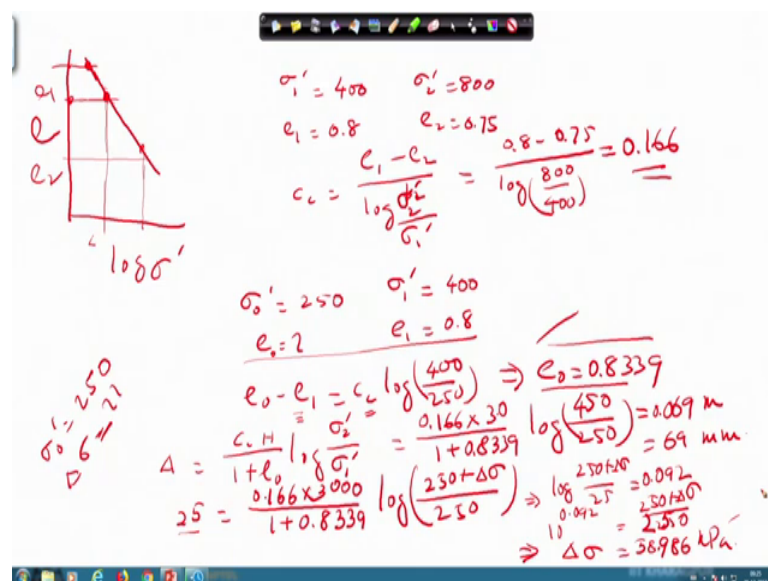 σ₁' = 400 σ₂' = 800
e₁ = 0.8 e₂ = 0.75
c_c = (e₁ - e₂) / (log σ₂'/σ₁') = (0.8 - 0.75) / (log(800/400)) = 0.166
e₁
e
e₂
log σ'
σ₀' = 250 σ₁' = 400
e₀ = ? e₁ = 0.8
e₀ - e₁ = c_c log(400/250) ⇒ e₀ = 0.8339
σ₀' = 250
Δ = (c_c H / 1 + e₀) log σ₂'/σ₁' = (0.166 × 30 / 1 + 0.8339) log(450/250) = 0.069 m
= 69 mm.
25 = (0.166 × 3000 / 1 + 0.8339) log(250 + Δσ / 250) ⇒ log 250+Δσ / 25 = 0.092
10^0.092 = 250+Δσ / 250
⇒ Δσ = 58.986 kPa.